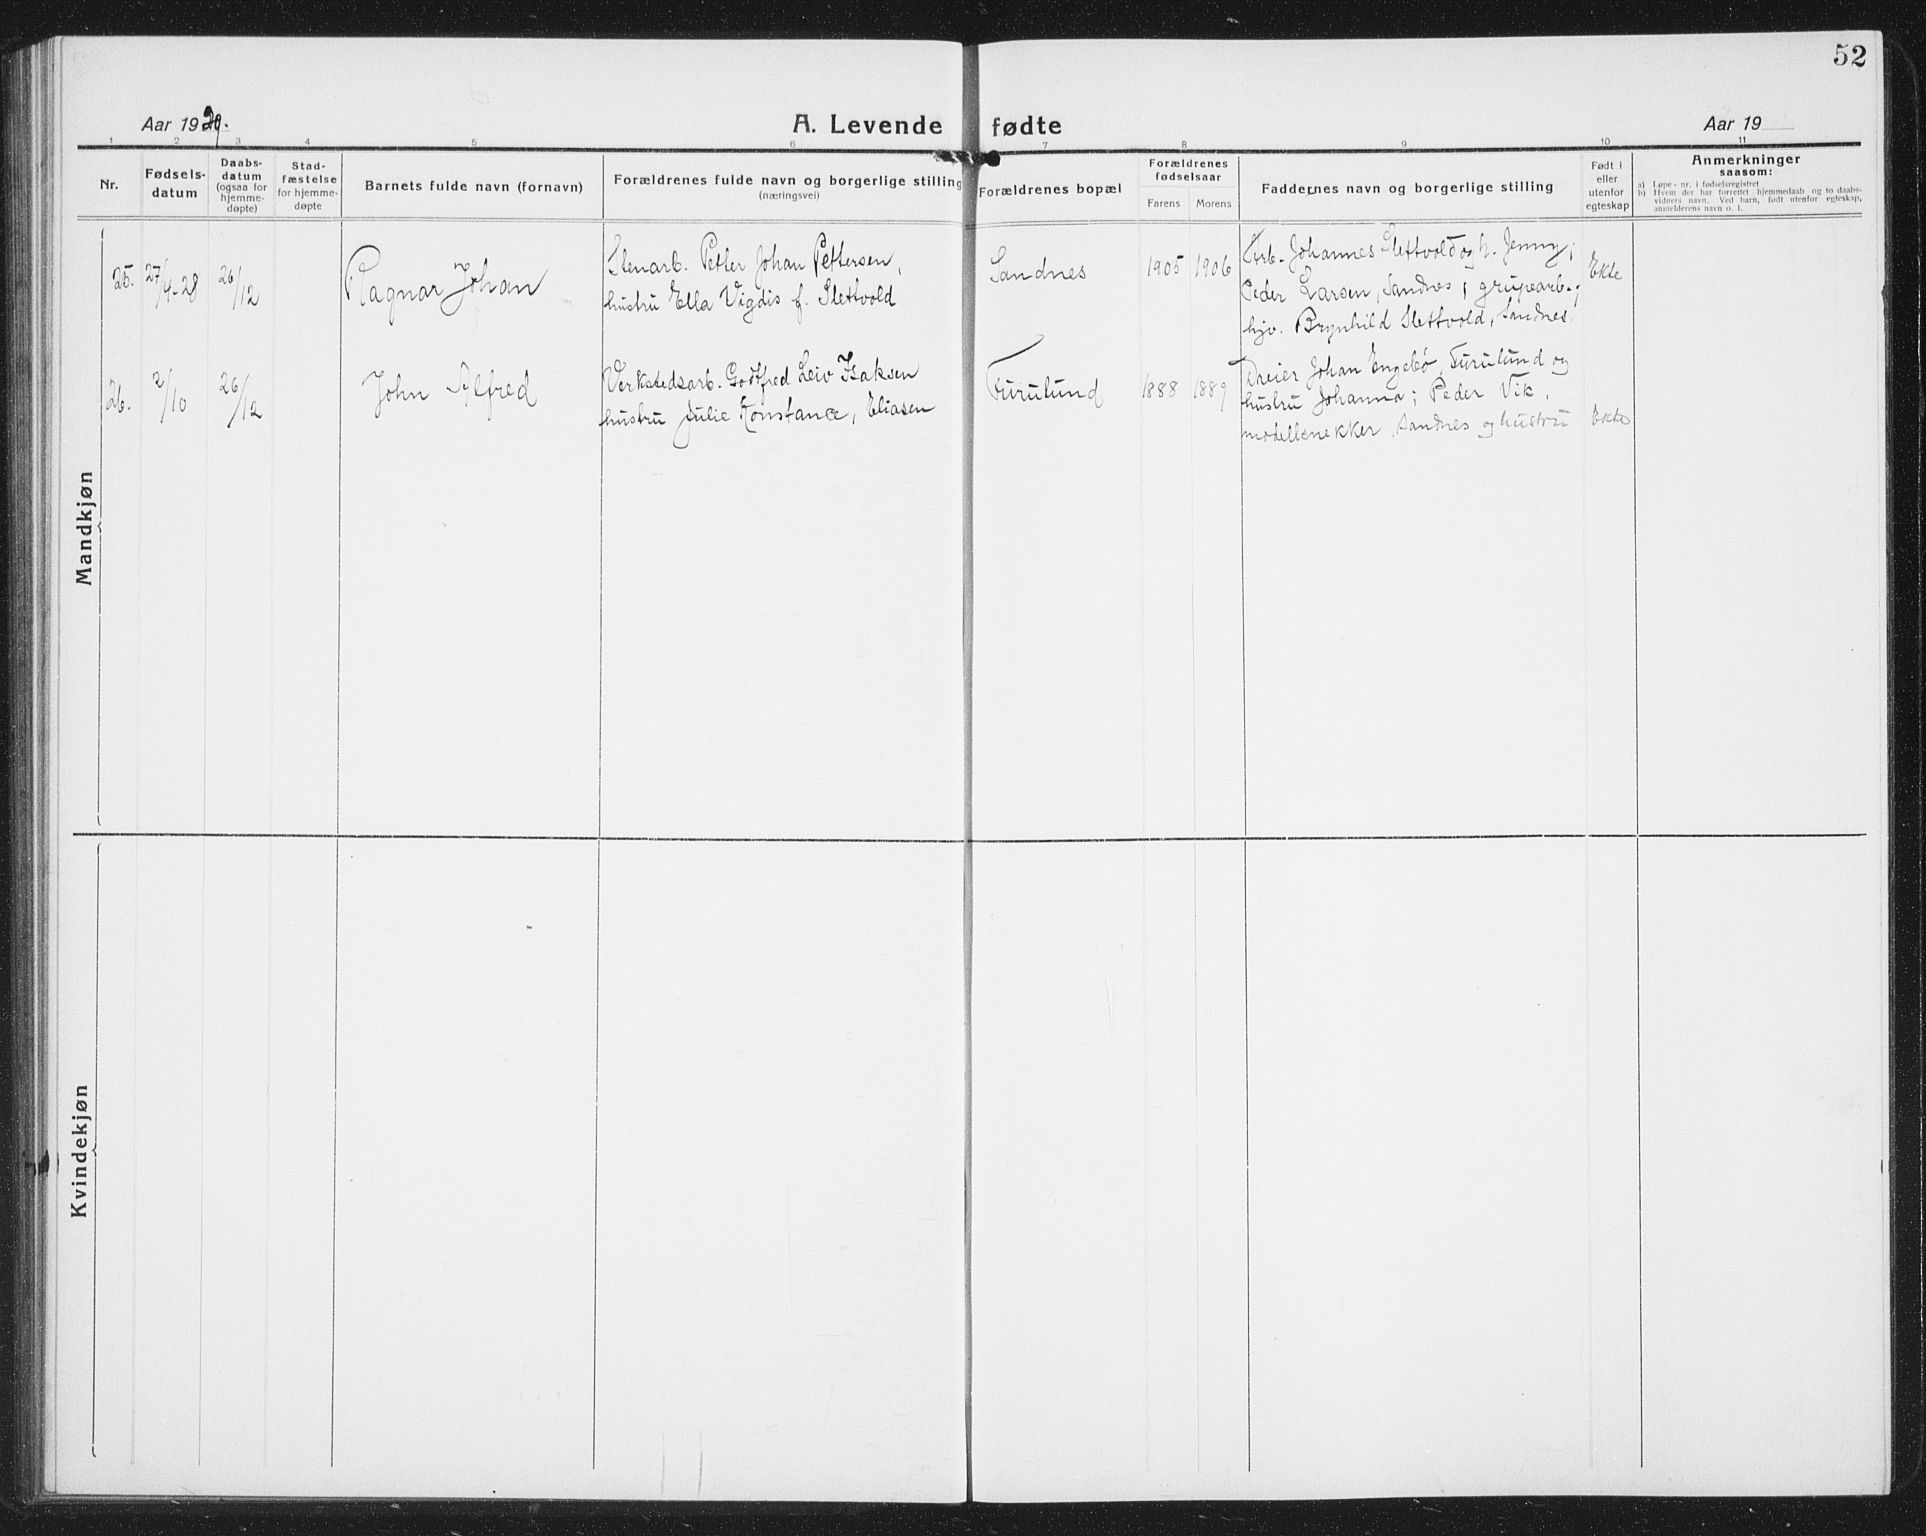 52
Aar 1929.
A. Levende fødte
Aar 19
1 2 3 4 5 6 7 8 9 10 11
Nr.
Fødsels-
datum
Daabs-
datum
(ogsaa for
hjemme-
døpte)
Stad-
fæstelse
for hjemme-
døpte
Barnets fulde navn (fornavn)
Forældrenes fulde navn og borgerlige stilling
(næringsvei)
Forældrenes bopæl
Forældrenes
fødselsaar
Farens Morens
Faddernes navn og borgerlige stilling
Født i
eller
utenfor
egteskap
Anmerkninger
saasom:
a) Løpe-nr. i fødselsregistret
b) Hvem der har forrettet hjemmedaab og to daabs-
vidners navn. Ved barn, født utenfor egteskap,
anmelderens navn o. l.
Mandkjøn
25.
27/4-28
26/12
Ragnar Johan
Stenarb. Petter Johan Pettersen,
hustru Ella Vigdis f. Slettvold
Sandnes
1905 1906
Arb. Johannes Slettvold og h. Jenny;
Peder Larsen, Sandnes, grubearb.;
hjv. Brynhild Slettvold, Sandnes.
Ekte
26.
2/10
26/12
John Alfred
Verkstedsarb. Godtfred Leiv Isaksen
hustru Julie Konstance, Eliasen
Furulund
1888 1889
Dreier Johan Engebø, Furulund og
hustru Johanna; Peder Vik,
modellsnekker, Sandnes og hustru
Ekte
Kvindekjøn